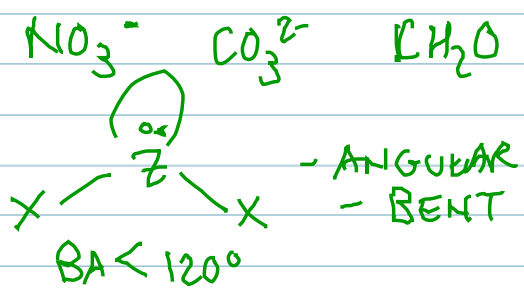 NO₃⁻ CO₃²⁻ CH₂O
Z
- ANGULAR
X X
- BENT
BA < 120°